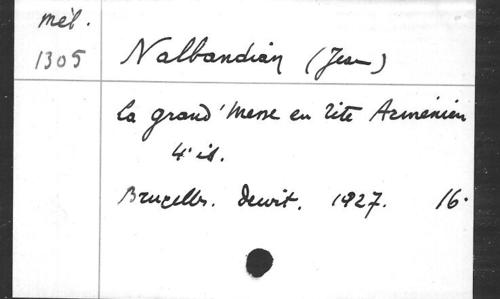 Mél.
1305
Nalbandian (Jean)
La grand' Messe en rite Arménien
4° éd.
Bruxelles. Dewit. 1927. 16°